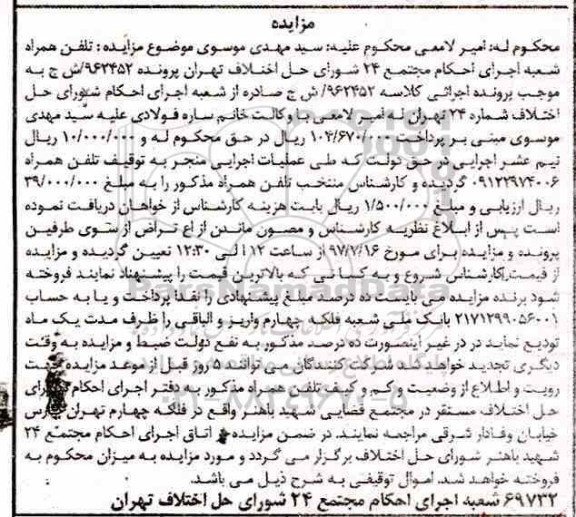 مزایده
محکوم له: امیر لامعی محکوم علیه: سید مهدی موسوی موضوع مزایده: تلفن همراه
شعبه اجرای احکام مجتمع ۲۴ شورای حل اختلاف تهران پرونده ۹۶۲۴۵۲/ش ج به
موجب پرونده اجرائی کلاسه ۹۶۲۴۵۲/ ش ج صادره از شعبه اجرای احکام شورای حل
اختلاف شماره ۲۴ تهران له امیر لامعی با وکالت خانم ساره فولادی علیه سید مهدی
موسوی مبنی بر پرداخت ۱۰۴/۶۷۰/۰۰۰ ریال در حق محکوم له و ۱۰/۰۰۰/۰۰۰ ریال
نیم عشر اجرایی در حق دولت که طی عملیات اجرایی منجر به توقیف تلفن همراه
۰۹۱۲۲۹۷۴۰۰۶ گردیده و کارشناس منتخب تلفن همراه مذکور را به مبلغ ۳۹/۰۰۰/۰۰۰
ریال ارزیابی و مبلغ ۱/۵۰۰/۰۰۰ ریال بابت هزینه کارشناس از خواهان دریافت نموده
است پس از ابلاغ نظریه کارشناس و مصون ماندن از اع تراض از سوی طرفین
پرونده و مزایده برای مورخ ۹۷/۷/۱۶ از ساعت ۱۲ الی ۱۲:۳۰ تعیین گردیده و مزایده
از قیمت کارشناس شروع و به کسانی که بالاترین قیمت را پیشنهاد نمایند فروخته
شود برنده مزایده می بایست ده درصد مبلغ پیشنهادی را نقدا پرداخت و یا به حساب
۲۱۷۱۲۹۹۰۵۶۰۰۱ بانک ملی شعبه فلکه چهارم واریز و الباقی را ظرف مدت یک ماه
تودیع نماید در غیر اینصورت ده درصد مذکور به نفع دولت ضبط و مزایده به وقت
دیگری تجدید خواهد شد شرکت کنندگان می توانند ۵ روز قبل از موعد مزایده جهت
رویت و اطلاع از وضعیت و کم و کیف تلفن همراه مذکور به دفتر اجرای احکام شورای
حل اختلاف مستقر در مجتمع قضایی شهید باهنر واقع در فلکه چهارم تهران پارس
خیابان وفادار شرقی مراجعه نمایند. در ضمن مزایده در اتاق اجرای احکام مجتمع ۲۴
شهید باهنر شورای حل اختلاف برگزار می گردد و مورد مزایده به میزان محکوم به
فروخته خواهد شد. اموال توقیفی به شرح ذیل می باشد.
۶۹۷۳۲ شعبه اجرای احکام مجتمع ۲۴ شورای حل اختلاف تهران
ParsNamadData